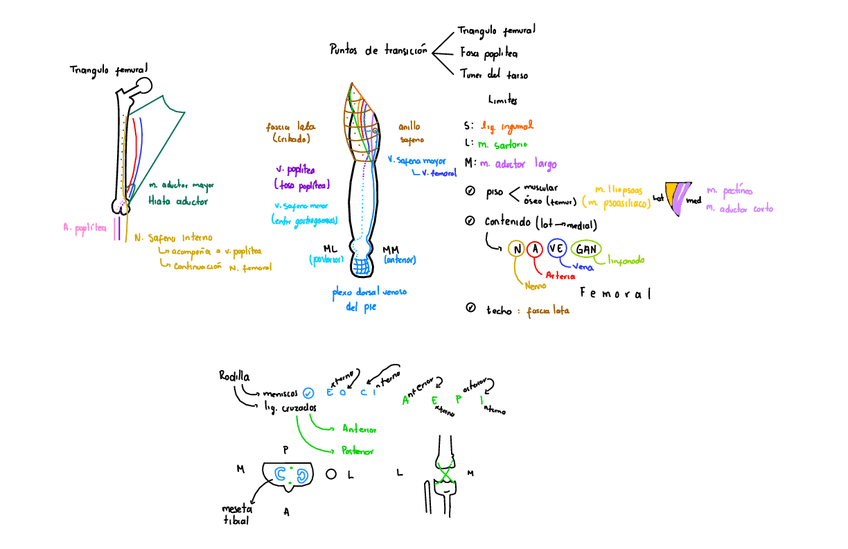 Puntos de transición
Triangulo femoral
Fosa poplítea
Tunel del tarso
Triangulo femoral
m. aductor mayor
Hiato aductor
A. poplítea
N. Safeno interno
acompaña a v. poplítea
continuación N. femoral
fascia lata
(cribado)
anillo
safeno
v. safena mayor
v. femoral
v. poplítea
(fosa poplítea)
v. safena menor
(entre gastrognemios)
ML
(posterior)
MM
(anterior)
plexo dorsal venoso
del pie
Limites
S: lig. inguinal
L: m. sartorio
M: m. aductor largo
piso
muscular
óseo (femur)
m. Iliopsoas
(m. psoasiliaco)
Lat
med
m. pectíneo
m. aductor corto
contenido (lat → medial)
N A VE GAN
linfonodo
vena
Arteria
Nervio
Femoral
techo: fascia lata
Rodilla
meniscos
lig. cruzados
Externo O C Interno
Anterior Externo Posterior Interno
Anterior
Posterior
P
M
L
A
meseta
tibial
L
M